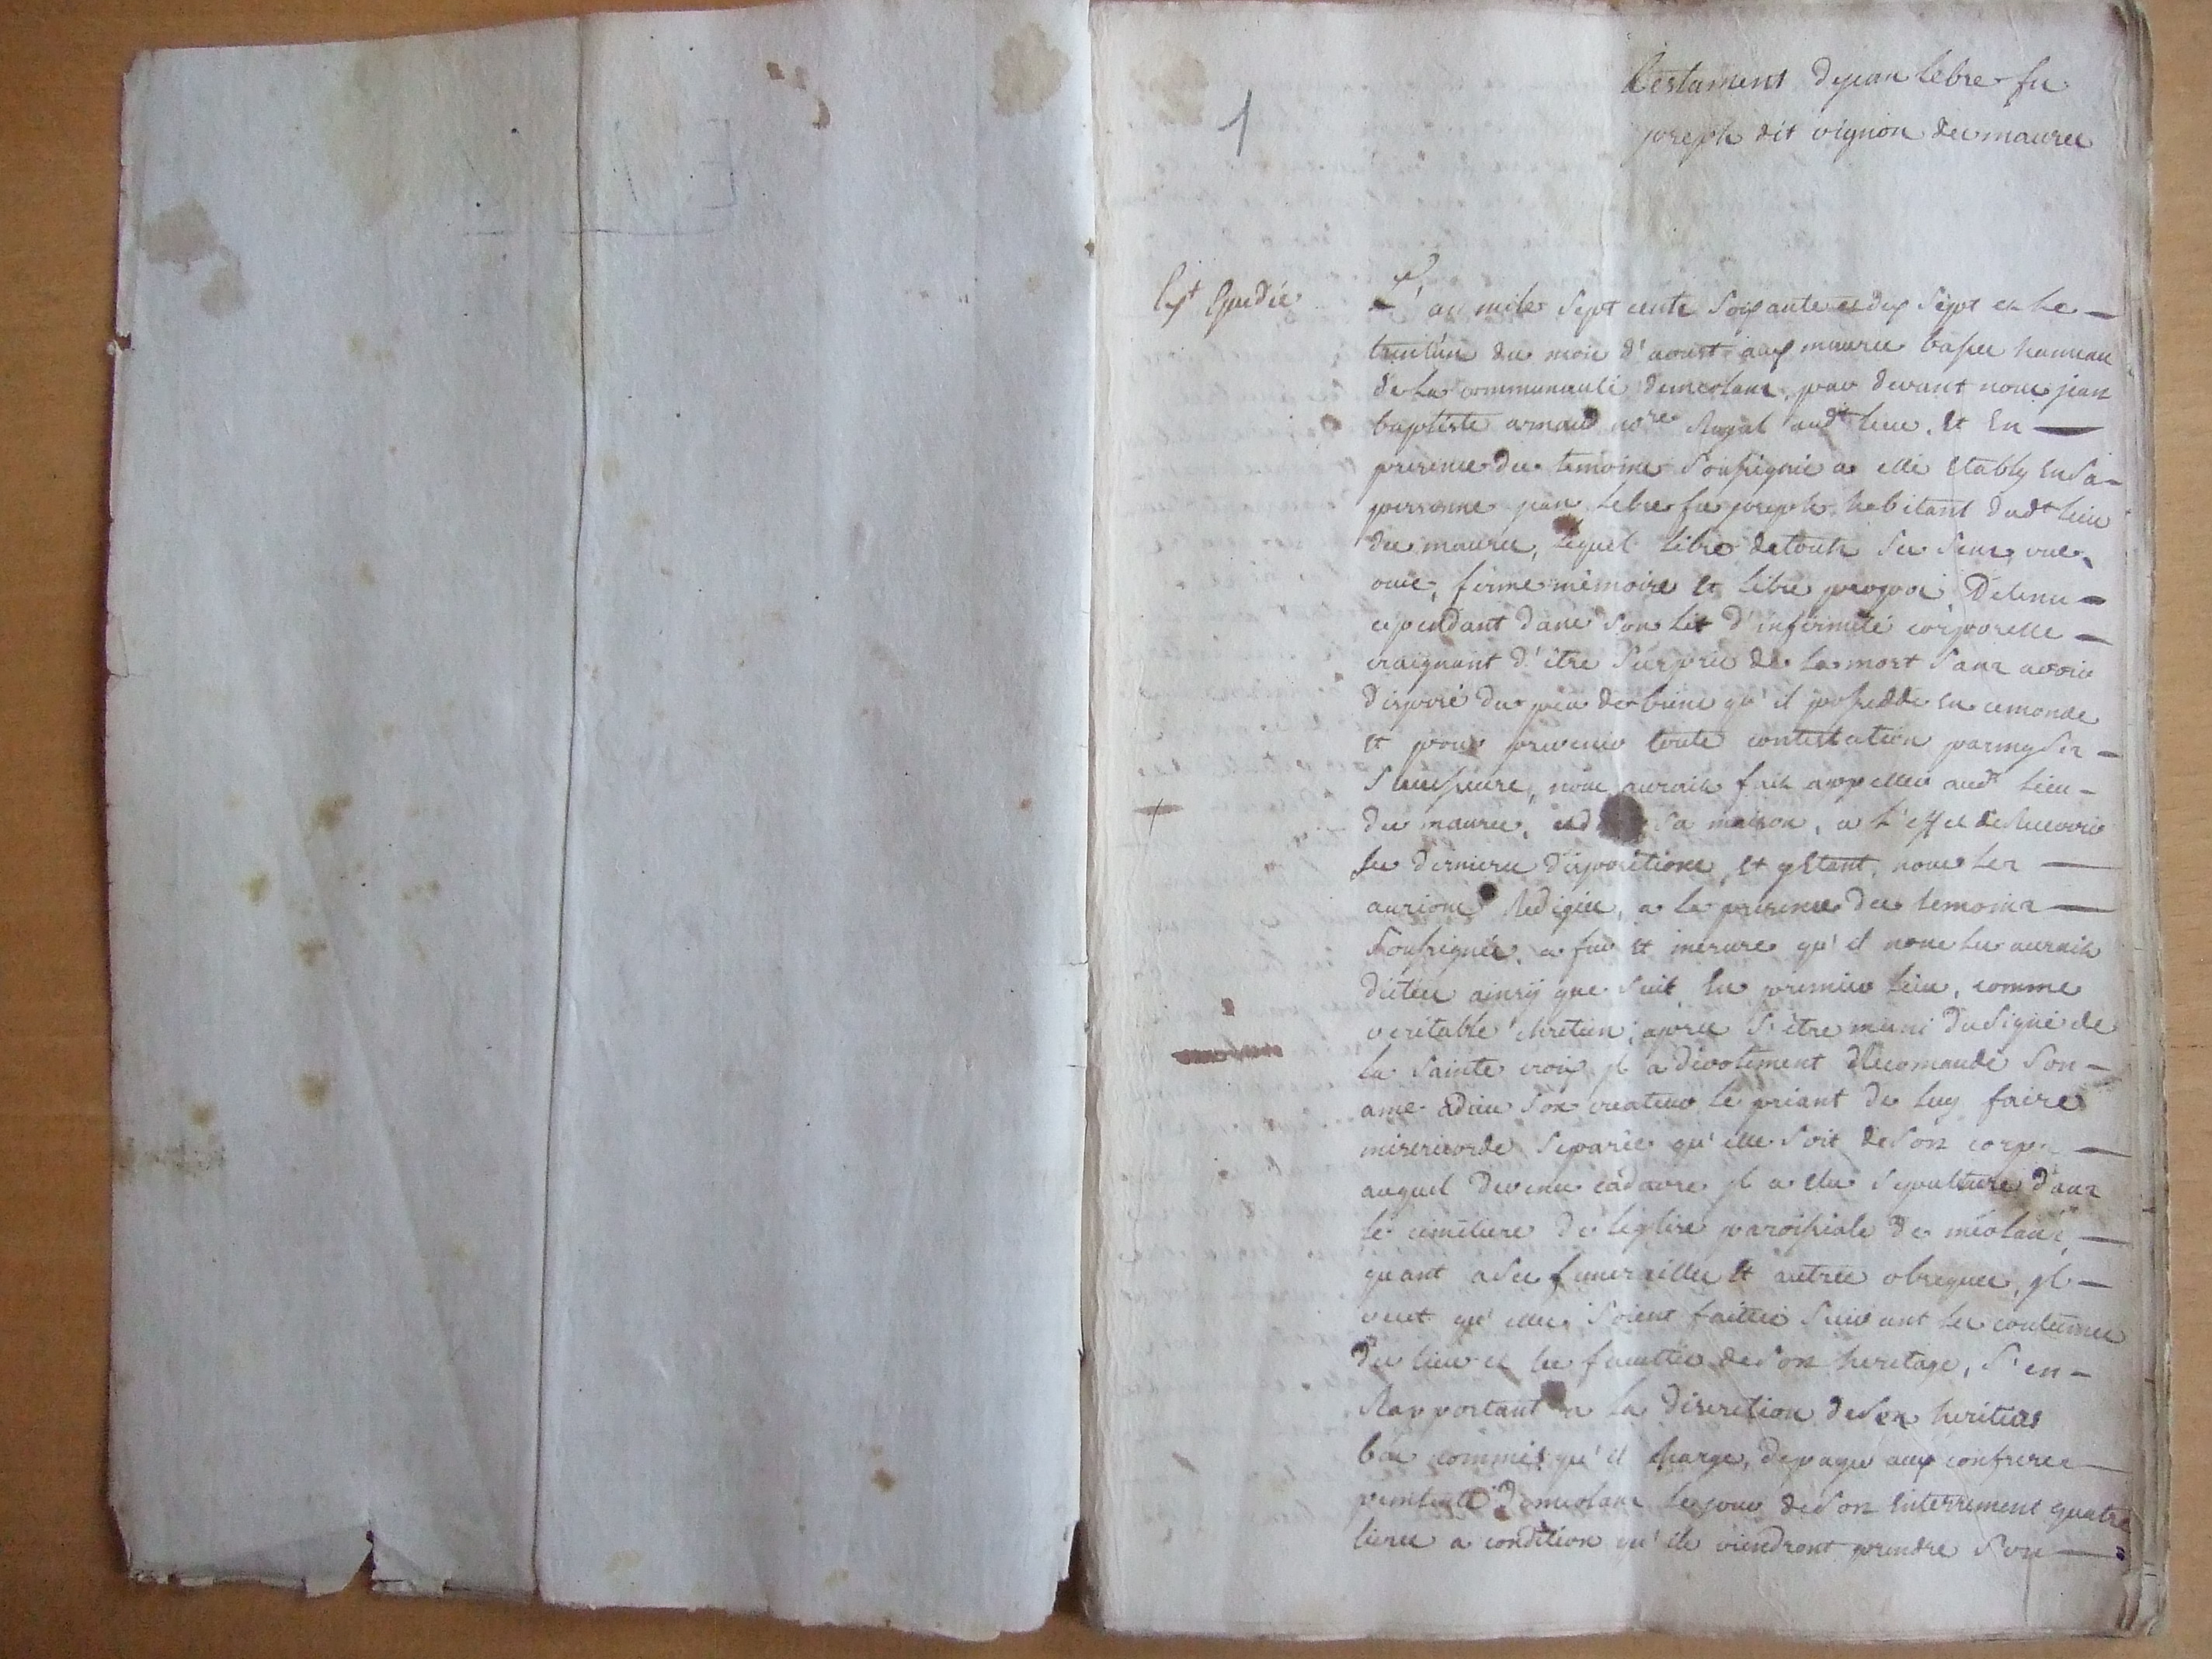 testament de jean lebre fu
joseph dit vignon des maures
1
Est Expedié
L'an mile sept cents soixante et dix sept et le
trentün du mois d'aoust aux maures basses hameau
de la communauté de meolans, par devant nous jean
baptiste arnaud no^re Royal aud^t lieu, et En
presence des temoins soussignés a esté Etably En sa
personne jean lebre fu joseph habitant dud^t lieu
des maures, lequel libre de touts ses sens, vue,
ouie, ferme mémoire et libre propos, Detenu
cependant dans son lit d'infirmité corporelle
craignant d'être surpris de la mort sans avoir
disposé du peu de biens qu'il possedde en ce monde
et pour prevenir toute contestation parmy ses
successeurs, nous auroit fait appeller aud^t lieu
des maures, et d sa maison, a l'effet de Recevoir
ses dernieres dispositions, et y Etant, nous les
aurions Redigées, a la presence des temoins
soussignés, a fur et mesure qu'il nous les auroit
dictées ainsÿ que suit En premier lieu, comme
veritable chretien, apres s'être muni du signe de
la sainte croix jl a devotement Recomandé son
ame a Dieu son createur le priant de luy faire
misericorde separée qu'elle soit de son corps
auquel devenu cadavre jl a elu sepulture dans
le cimetiere de leglise paroissiale de méolans,
quant a ses funerailles et autres obseques, jl
veut qu'elles soient faittes suivant les coutumes
du lieu et les facultés de son heritage, s'en
Rapportant a la discretion de son heritier
bas commis qu'il charge, de payer aux confreres
penitents de meolans le jour de son Enterrement quatre
livres a condition qu'ils viendront prendre son